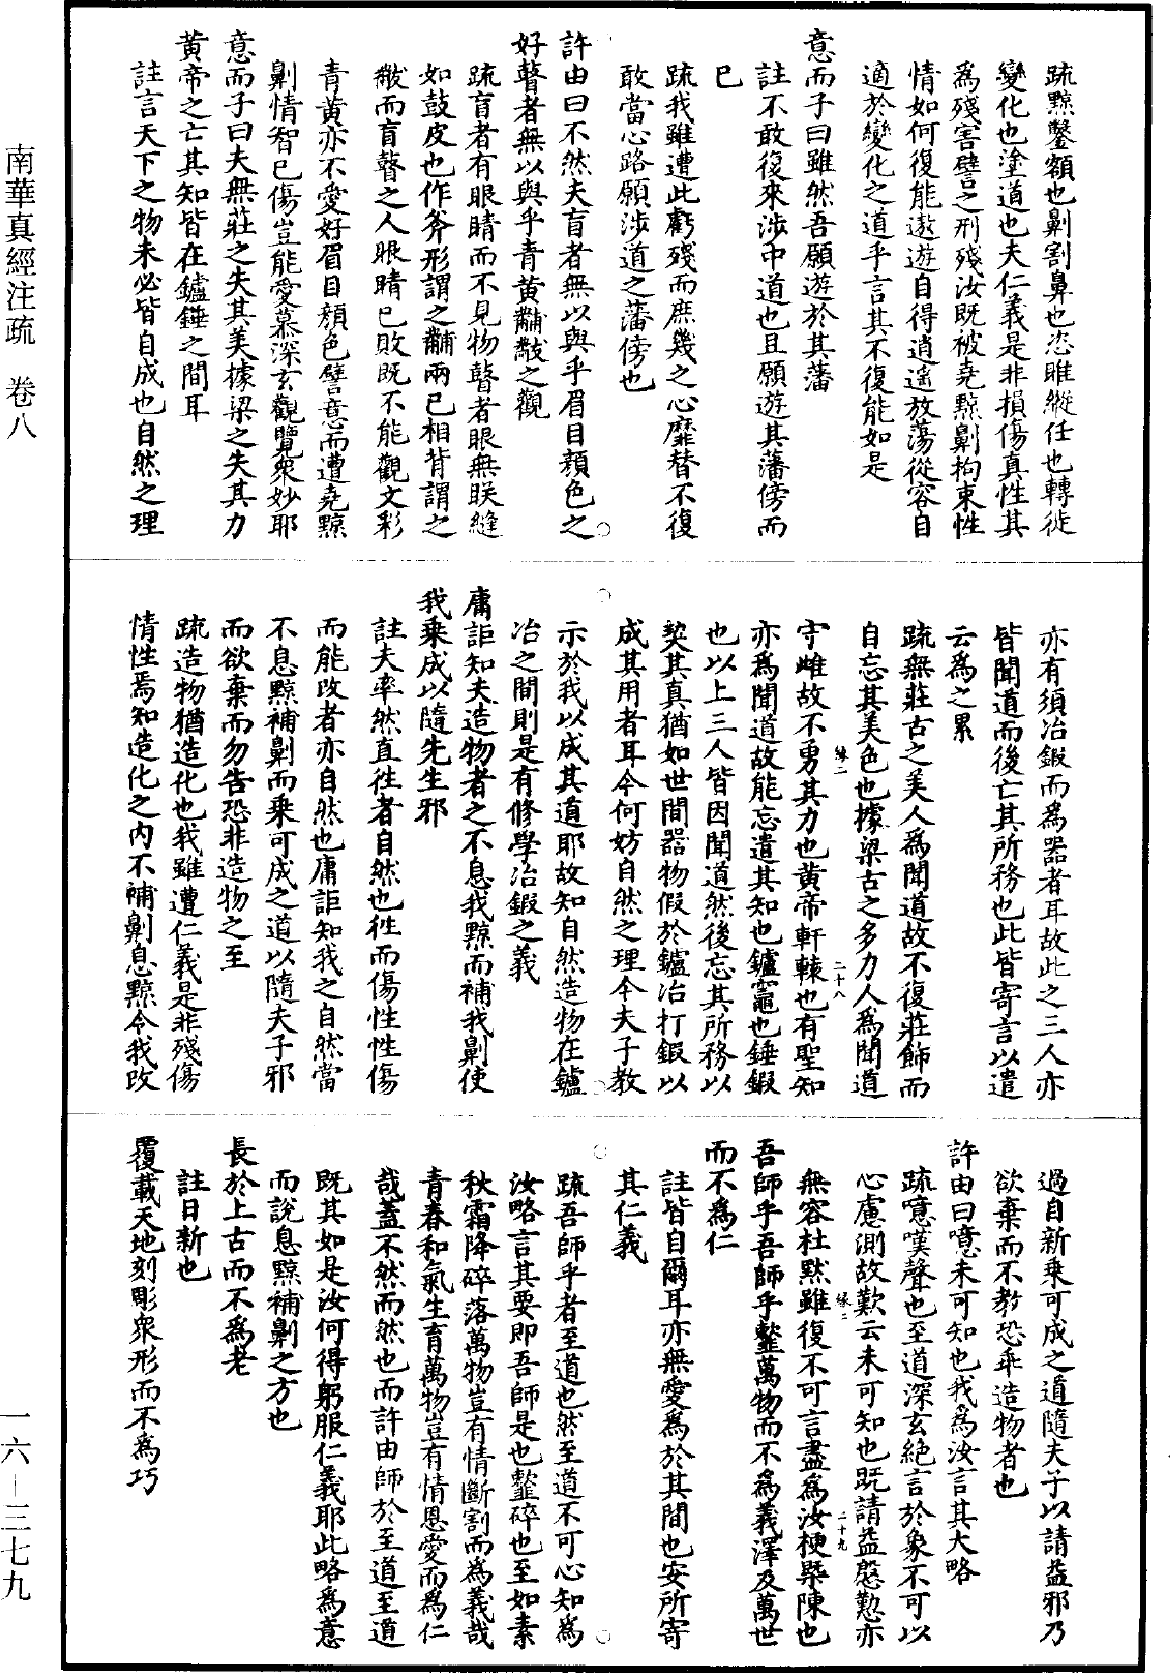 疏黥鑿額也劓割鼻也恣睢縱任也轉徙
變化也塗道也夫仁義是非損傷真性其
為殘害譬之刑殘汝既被堯黥劓拘束性
情如何復能遨遊自得逍遙放蕩從容自
適於變化之道乎言其不復能如是
意而子曰雖然吾願遊於其藩
註不敢復來涉中道也且願遊其藩傍而
已
疏我雖遭此虧殘而庶幾之心靡替不復
敢當心路願涉道之藩傍也
許由曰不然夫盲者無以與乎眉目顏色之
好瞽者無以與乎青黃黼黻之觀
疏盲者有眼睛而不見物瞽者眼無眹縫
如鼓皮也作斧形謂之黼兩己相背謂之
黻而盲瞽之人眼睛已敗既不能觀文彩
青黃亦不愛好眉目顏色譬意而遭堯黥
劓情智已傷豈能愛慕深玄觀覽衆妙耶
意而子曰夫無莊之失其美據梁之失其力
黃帝之亡其知皆在鑪錘之間耳
註言天下之物未必皆自成也自然之理
亦有須冶鍛而為器者耳故此之三人亦
皆聞道而後亡其所務也此皆寄言以遣
云為之累
疏無莊古之美人為聞道故不復莊飾而
自忘其美色也據梁古之多力人為聞道
守雌故不勇其力也黃帝軒轅也有聖知
亦為聞道故能忘遣其知也鑪竈也錘鍛
也以上三人皆因聞道然後忘其所務以
契其真猶如世間器物假於鑪冶打鍛以
成其用者耳今何妨自然之理令夫子教
示於我以成其道耶故知自然造物在鑪
冶之間則是有修學冶鍛之義
庸詎知夫造物者之不息我黥而補我劓使
我乘成以隨先生邪
註夫率然直往者自然也往而傷性性傷
而能改者亦自然也庸詎知我之自然當
不息黥補劓而乘可成之道以隨夫子邪
而欲棄而勿告恐非造物之至
疏造物猶造化也我雖遭仁義是非殘傷
情性焉知造化之內不補劓息黥令我改
過自新乘可成之道隨夫子以請益邪乃
欲棄而不教恐乖造物者也
許由曰噫未可知也我為汝言其大略
疏噫嘆聲也至道深玄絕言於象不可以
心慮測故歎云未可知也既請益慇懃亦
無容杜默雖復不可言盡為汝梗槩陳也
吾師乎吾師乎䪠萬物而不為義澤及萬世
而不為仁
註皆自爾耳亦無愛為於其間也安所寄
其仁義
疏吾師乎者至道也然至道不可心知為
汝略言其要即吾師是也䪠碎也至如素
秋霜降碎落萬物豈有情斷割而為義哉
青春和氣生育萬物豈有情恩愛而為仁
哉蓋不然而然也而許由師於至道至道
既其如是汝何得躬服仁義耶此略為意
而說息黥補劓之方也
長於上古而不為老
註日新也
覆載天地刻彫衆形而不為巧
南華真經注疏 卷八
一六－三七九
緣二
二十八
緣二
二十九